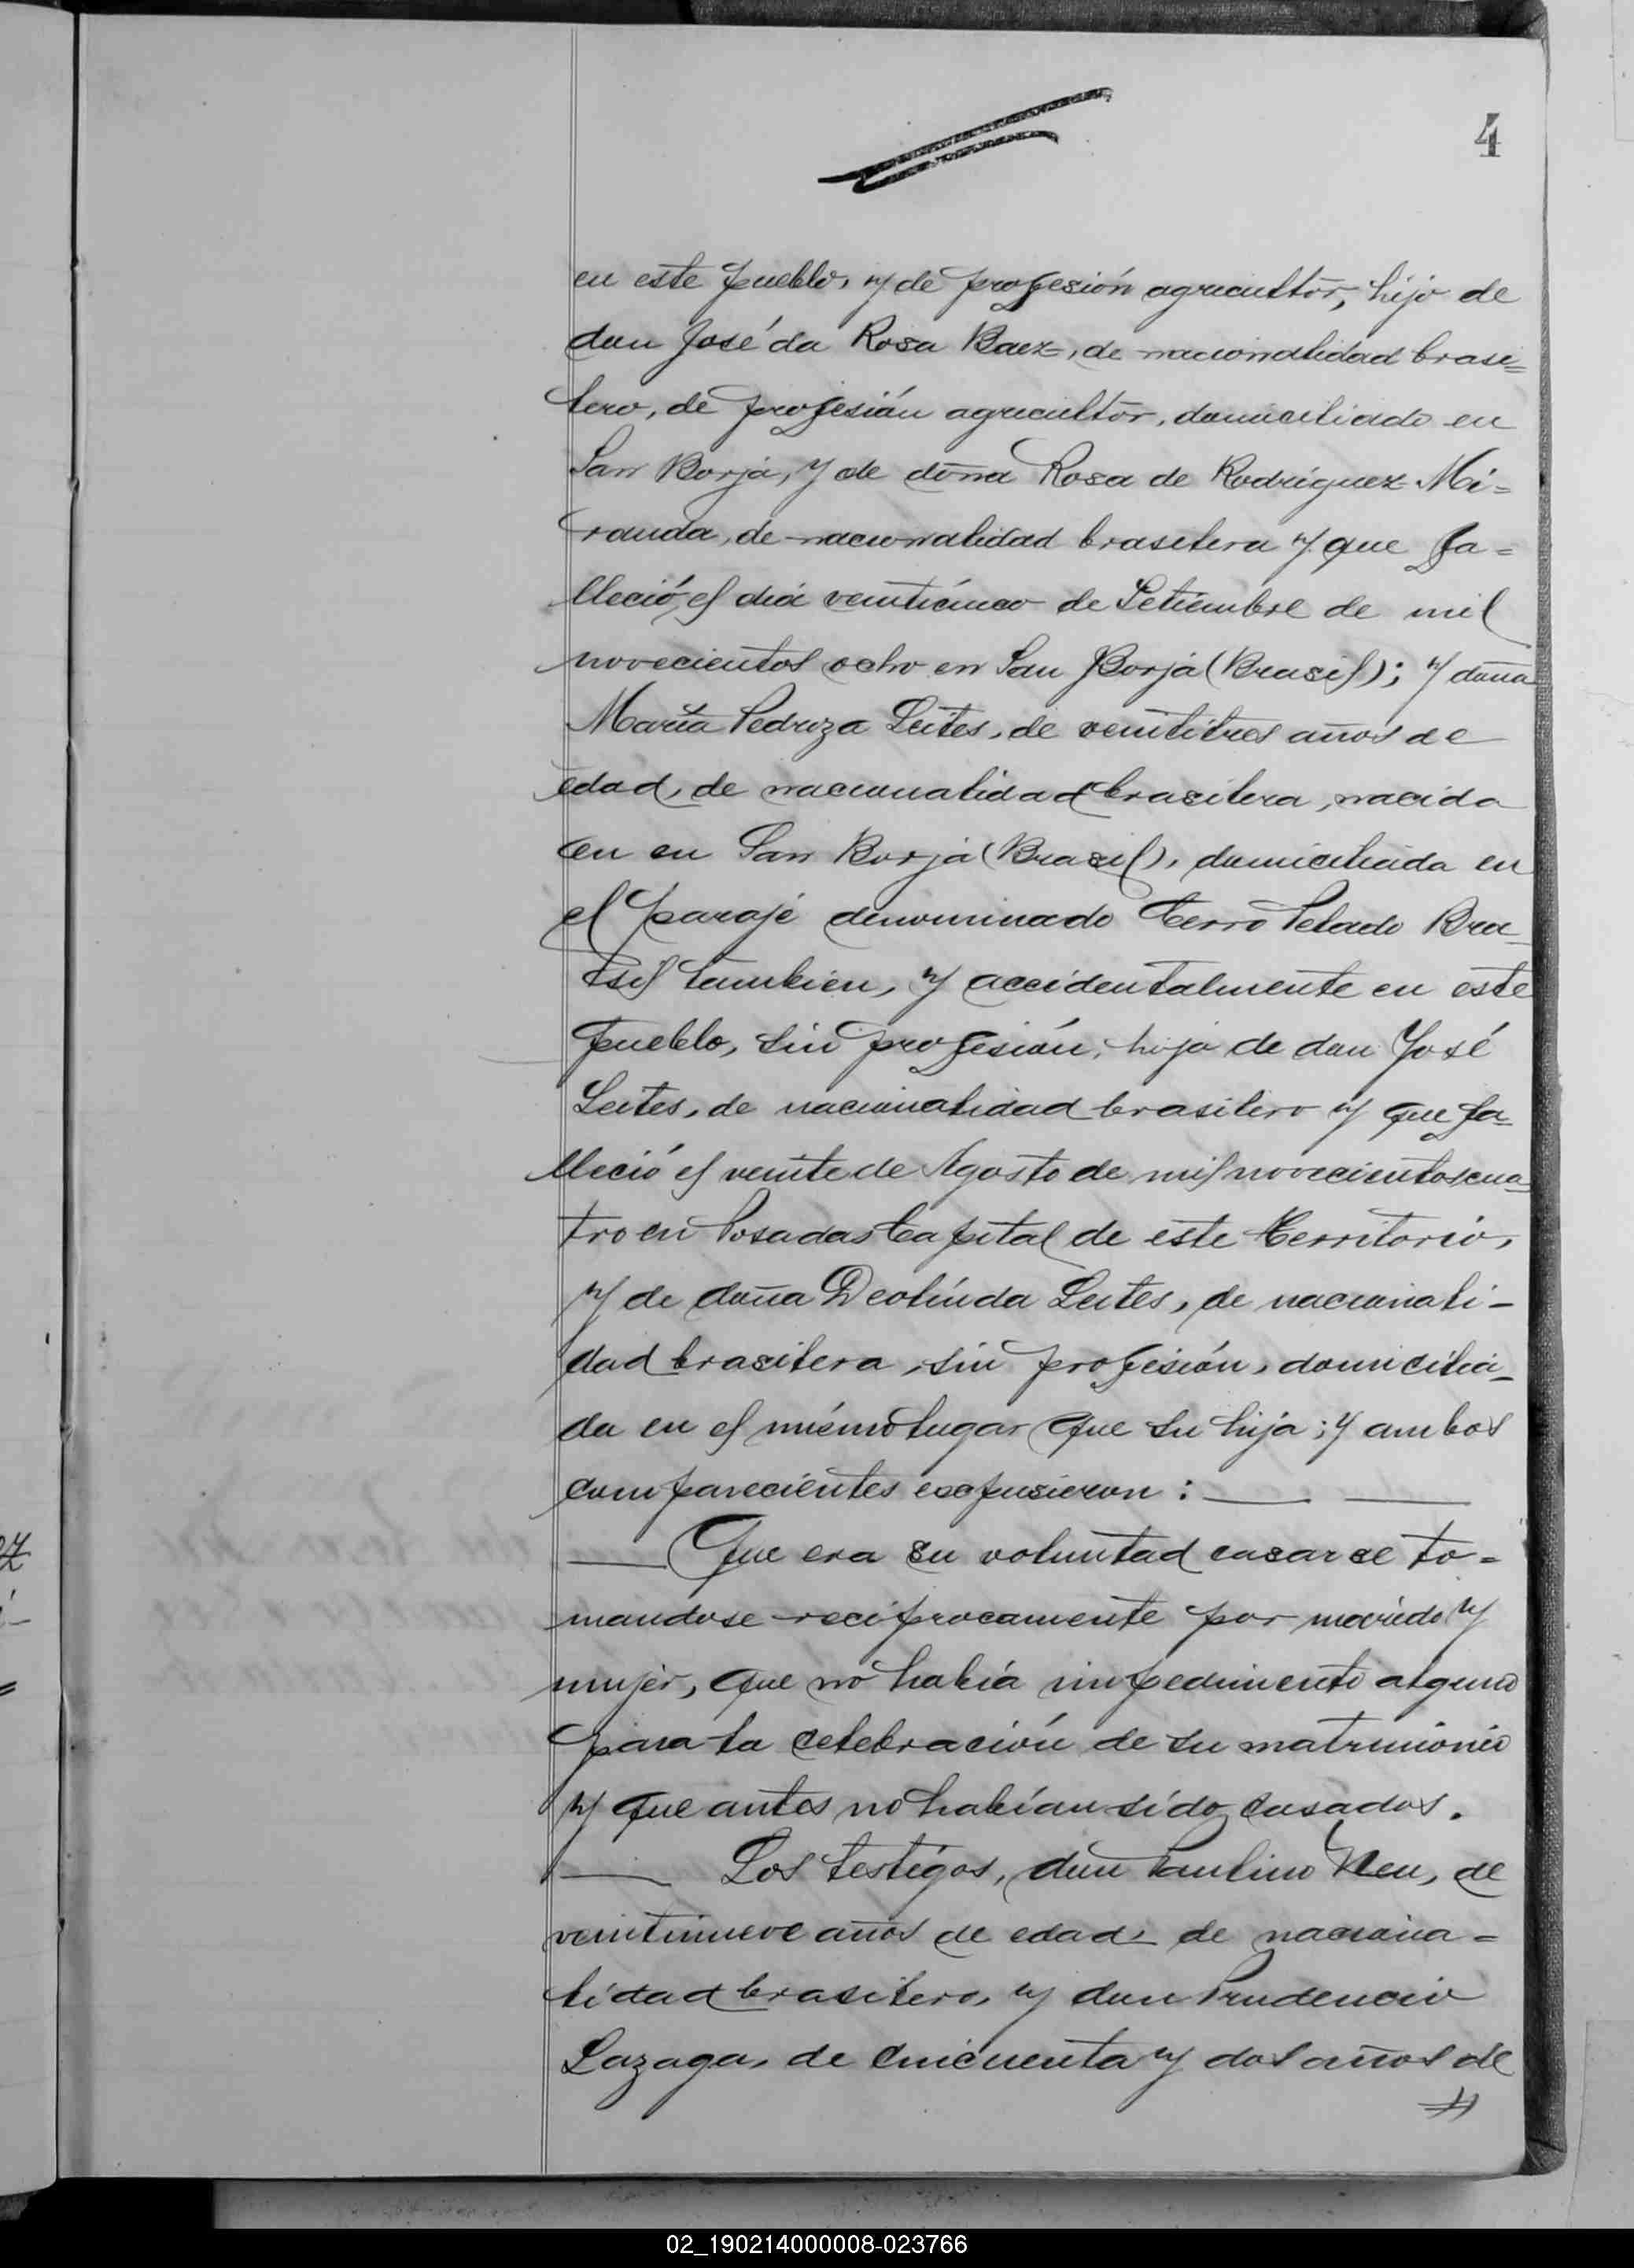 4
en este pueblo, y de profesión agricultor, hijo de
don José da Rosa Baez, de nacionalidad brasi=
lero, de profesión agricultor, domiciliado en
San Borja, y de doña Rosa de Rodríguez Mi=
randa, de nacionalidad brasilera y que fa=
lleció el día veinticinco de Setiembre de mil
novecientos ocho en San Borja (Brasil); y doña
María Pedroza Leites, de veintitres años de
edad, de nacionalidad brasilera, nacida
en en San Borja (Brasil), domiciliada en
el paraje denominado Cerro Pelado Bra-
sil tambien, y accidentalmente en este
pueblo, sin profesión, hija de don José
Leites, de nacionalidad brasilero y que fa-
lleció el veinte de Agosto de mil novecientos cua-
tro en Posadas Capital de este Territorio,
y de doña Deolinda Leites, de nacionali-
dad brasilera, sin profesión, domicilia-
da en el mismo lugar que su hija; y ambos
comparecientes expusieron:
Que era su voluntad casarse to=
mandose reciprocamente por marido y
mujer, que no había impedimento alguno
para la celebración de su matrimonio
y que antes no habían sido casados.
Los testigos, don Paulino Neu, de
veintinueve años de edad, de naciona=
lidad brasilero, y don Prudencio
Lazaga, de cincuenta y dos años de
02_190214000008-023766